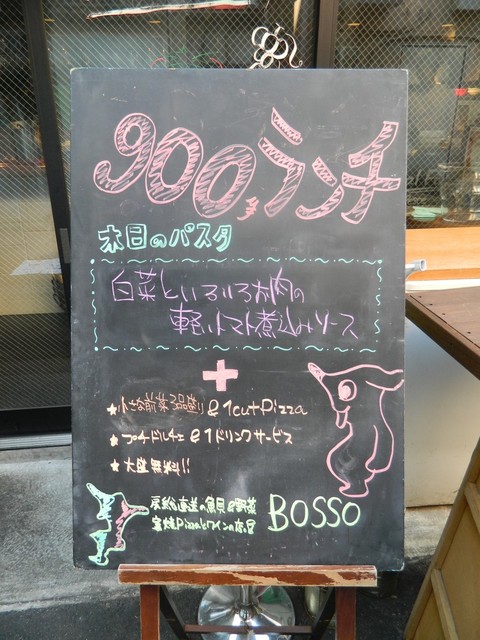 900円ランチ
本日のパスタ
白菜といろいろお肉の
軽いトマト煮込みソース
+
★小さな前菜3品盛り & 1cut Pizza
★プチドルチェ & 1ドリンクサービス
★大盛無料!!
房総直送の魚貝&野菜
窯焼PizzaとワインのBOSSO